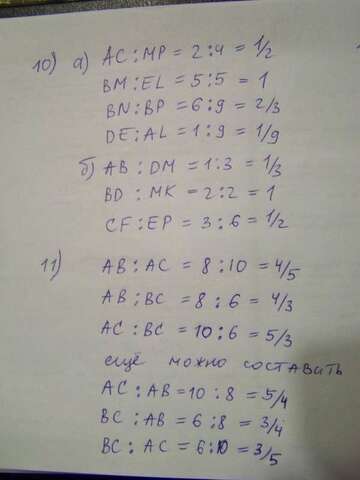 10) а) AC : MP = 2 : 4 = 1/2
BM : EL = 5 : 5 = 1
BN : BP = 6 : 9 = 2/3
DE : AL = 1 : 9 = 1/9
б) AB : DM = 1 : 3 = 1/3
BD : MK = 2 : 2 = 1
CF : EP = 3 : 6 = 1/2
11) AB : AC = 8 : 10 = 4/5
AB : BC = 8 : 6 = 4/3
AC : BC = 10 : 6 = 5/3
ещё можно составить
AC : AB = 10 : 8 = 5/4
BC : AB = 6 : 8 = 3/4
BC : AC = 6 : 10 = 3/5